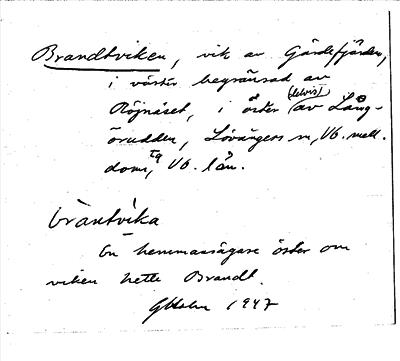 Brandtviken, vik av Gärdefjärden,
i väster begränsad av
Röjnäset, i öster (delvis) av Lång-
örudden, Lövångers sn, Vb. mell.
doms tg, Vb. län.
bràntvika
En hemmansägare öster om
viken hette Brandt.
GHolm 1947